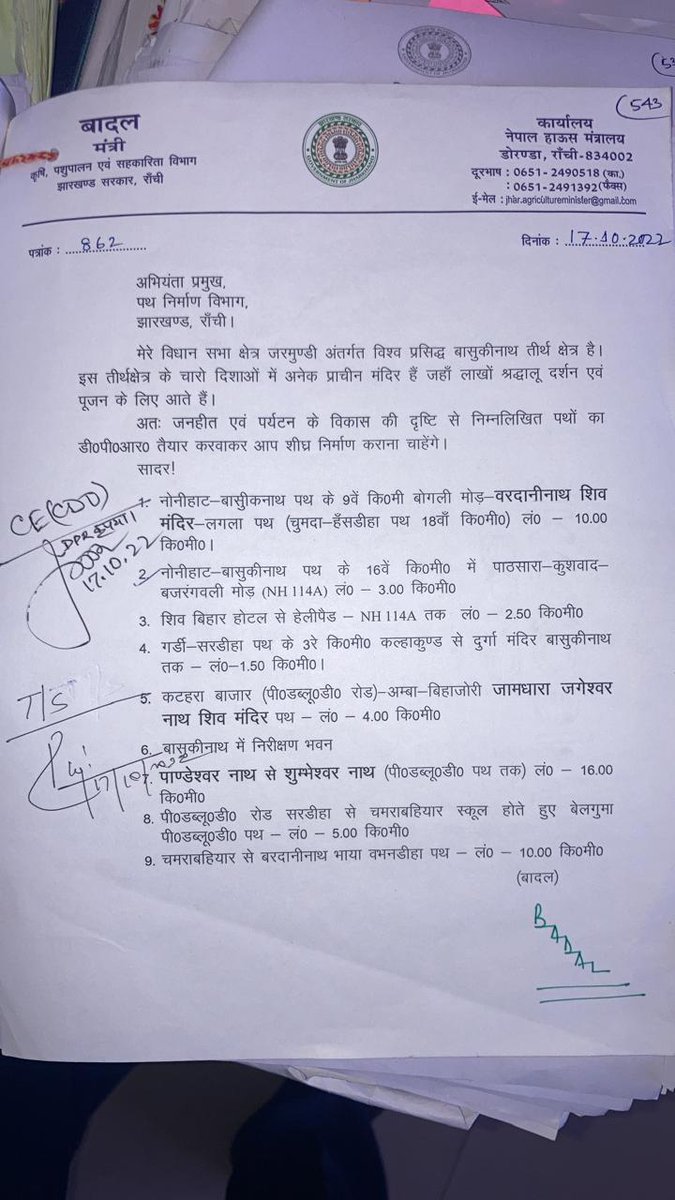 543
बादल
मंत्री
कृषि, पशुपालन एवं सहकारिता विभाग
झारखण्ड सरकार, राँची
कार्यालय
नेपाल हाऊस मंत्रालय
डोरण्डा, राँची-834002
दूरभाष : 0651- 2490518 (का.)
: 0651- 2491392 (फैक्स)
ई-मेल : jhar.agricultureminister@gmail.com
पत्रांक : 862
दिनांक : 17.10.2022
अभियंता प्रमुख,
पथ निर्माण विभाग,
झारखण्ड, राँची।
मेरे विधान सभा क्षेत्र जरमुण्डी अंतर्गत विश्व प्रसिद्ध बासुकीनाथ तीर्थ क्षेत्र है।
इस तीर्थक्षेत्र के चारो दिशाओं में अनेक प्राचीन मंदिर हैं जहाँ लाखों श्रद्धालू दर्शन एवं
पूजन के लिए आते हैं।
अतः जनहीत एवं पर्यटन के विकास की दृष्टि से निम्नलिखित पथों का
डी0पी0आर0 तैयार करवाकर आप शीघ्र निर्माण कराना चाहेंगे।
सादर!
CE (CDO)
DPR कृपया।
17.10.22
1. नोनीहाट–बासुीकनाथ पथ के 9वें कि0मी बोगली मोड़–वरदानीनाथ शिव
मंदिर–लगला पथ (चुमदा–हँसडीहा पथ 18वाँ कि0मी0) लं0 – 10.00
कि0मी0।
2. नोनीहाट–बासुकीनाथ पथ के 16वें कि0मी0 में पाठसारा–कुशवाद–
बजरंगवली मोड़ (NH 114A) लं0 – 3.00 कि0मी0
3. शिव बिहार होटल से हेलीपैड – NH 114A तक लं0 – 2.50 कि0मी0
4. गर्डी–सरडीहा पथ के 3रे कि0मी0 कल्हाकुण्ड से दुर्गा मंदिर बासुकीनाथ
तक – लं0–1.50 कि0मी0।
T/S
5. कटहरा बाजार (पी0डब्लू0डी0 रोड)–अम्बा–बिहाजोरी जामधारा जगेश्वर
नाथ शिव मंदिर पथ – लं0 – 4.00 कि0मी0
6. बासुकीनाथ में निरीक्षण भवन
7. पाण्डेश्वर नाथ से शुम्भेश्वर नाथ (पी0डब्लू0डी0 पथ तक) लं0 – 16.00
कि0मी0
8. पी0डब्लू0डी0 रोड सरडीहा से चमराबहियार स्कूल होते हुए बेलगुमा
पी0डब्लू0डी0 पथ – लं0 – 5.00 कि0मी0
9. चमराबहियार से बरदानीनाथ भाया वभनडीहा पथ – लं0 – 10.00 कि0मी0
(बादल)
BADAL